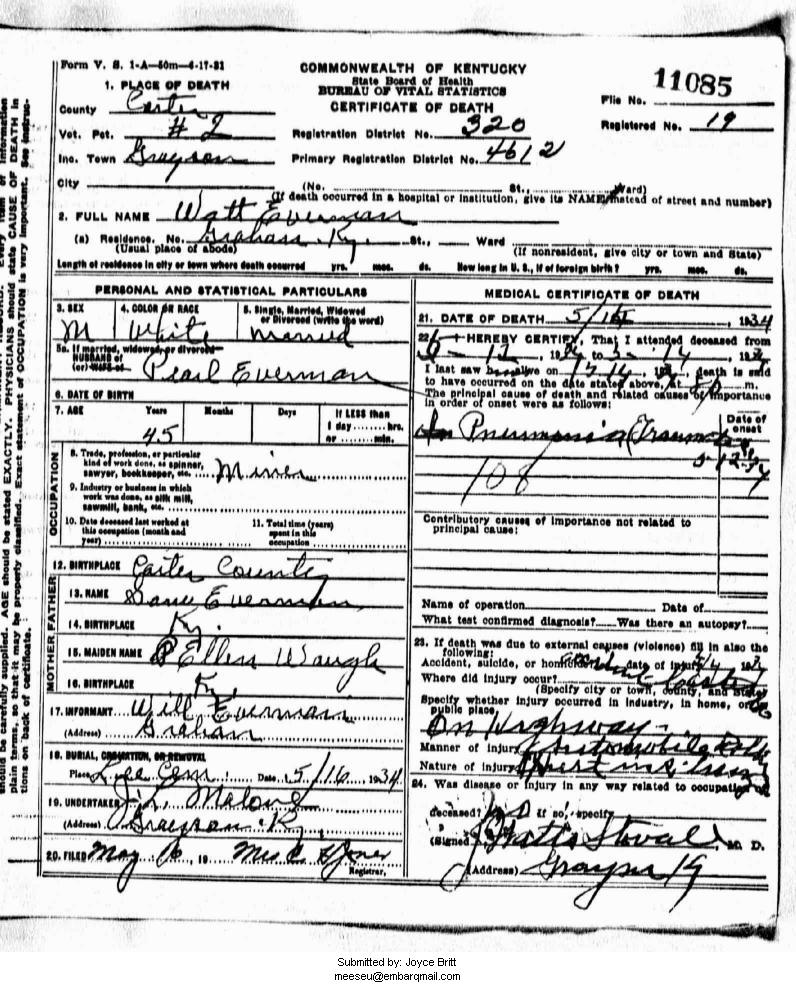 Form V. S. 1-A—50m—4-17-31
COMMONWEALTH OF KENTUCKY
State Board of Health
BUREAU OF VITAL STATISTICS
CERTIFICATE OF DEATH
11085
File No.
Registered No. 19
1. PLACE OF DEATH
County Carter
Vot. Pct. #2
Registration District No. 320
Inc. Town Grayson
Primary Registration District No. 4612
City (No. St., Ward)
(If death occurred in a hospital or institution, give its NAME instead of street and number)
2. FULL NAME Watt Everman
(a) Residence. No. Graham Ky. St., Ward
(Usual place of abode)
(If nonresident, give city or town and State)
Length of residence in city or town where death occurred yrs. mos. ds. How long in U. S., if of foreign birth? yrs. mos. ds.
PERSONAL AND STATISTICAL PARTICULARS
3. SEX
M
4. COLOR OR RACE
White
5. Single, Married, Widowed
or Divorced (write the word)
Married
5a. If married, widowed, or divorced
HUSBAND of
(or) WIFE of Pearl Everman
6. DATE OF BIRTH
7. AGE Years Months Days If LESS than
1 day hrs.
or min.
45
OCCUPATION
8. Trade, profession, or particular
kind of work done, as spinner,
sawyer, bookkeeper, etc. Miner
9. Industry or business in which
work was done, as silk mill,
sawmill, bank, etc.
10. Date deceased last worked at
this occupation (month and
year)
11. Total time (years)
spent in this
occupation
12. BIRTHPLACE Carter County
FATHER
13. NAME Everman
14. BIRTHPLACE Ky.
MOTHER
15. MAIDEN NAME Ellen Waugh
16. BIRTHPLACE Ky.
17. INFORMANT Will Everman
(Address) Graham
18. BURIAL, CREMATION, OR REMOVAL
Place Cem. Date 5/16 1934
19. UNDERTAKER Malone
(Address) Grayson Ky.
20. FILED May 19 Mrs
Registrar.
MEDICAL CERTIFICATE OF DEATH
21. DATE OF DEATH 5/ 1934
22. I HEREBY CERTIFY, That I attended deceased from
12, 19 to 14, 19
I last saw h alive on 14, 19 , death is said
to have occurred on the date stated above, at 8 m.
The principal cause of death and related causes of importance
in order of onset were as follows:
Date of
onset
Pneumonia
108
Contributory causes of importance not related to
principal cause:
Name of operation Date of
What test confirmed diagnosis? Was there an autopsy?
23. If death was due to external causes (violence) fill in also the
following:
Accident, suicide, or homicide? Date of injury
Where did injury occur? Carter
(Specify city or town, county, and State)
Specify whether injury occurred in industry, in home, or in
public place.
On Highway
Manner of injury Automobile
Nature of injury
24. Was disease or injury in any way related to occupation of
deceased? No If so, specify
(Signed) Watts Stovall, M. D.
(Address) Grayson Ky
Submitted by: Joyce Britt
meeseu@embarqmail.com